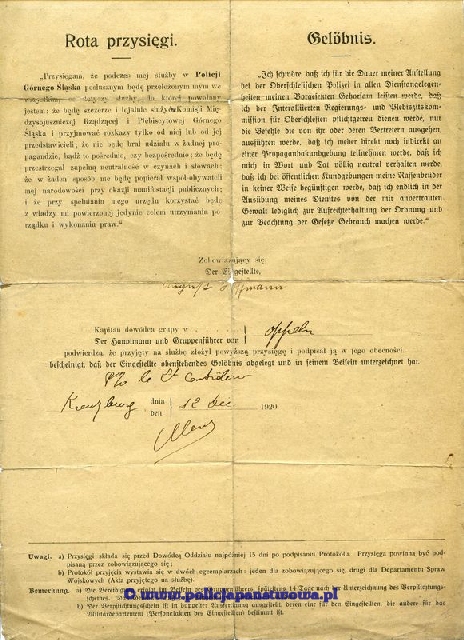 Rota przysięgi.
„Przysięgam, że podczas mej służby w Policji
Górnego Śląska posłusznym będę przełożonym mym we
wszystkim, co dotyczy służby, do której powołany
jestem; że będę szczerze i lojalnie służył Komisji Mię-
dzysojuszniczej Rządzącej i Plebiscytowej Górnego
Śląska i przyjmować rozkazy tylko od niej lub od jej
przedstawicieli; że nie będę brał udziału w żadnej pro-
pagandzie, bądź to pośrednio, czy bezpośrednio; że będę
przestrzegał zupełnej neutralności w czynach i słowach;
że w żaden sposób nie będę popierał współobywateli
mej narodowości przy okazji manifestacji publicznych;
i że przy spełnianiu mego urzędu korzystać będę
z władzy mi powierzonej jedynie celem utrzymania po-
rządku i wykonania praw.“
Gelöbnis.
„Ich schwöre daß ich für die Dauer meiner Anstellung
bei der Oberschlesischen Polizei in allen Dienstangelegen-
heiten meinen Vorgesetzten Gehorsam leisten werde, daß
ich der Interalliierten Regierungs- und Plebiszitkom-
mission für Oberschlesien pflichtgetreu dienen werde, nur
die Befehle die von ihr oder deren Vertretern ausgehen
ausführen werde, daß ich weder direkt noch indirekt an
einer Propagandakundgebung teilnehmen werde, daß ich
mich in Wort und Tat völlig neutral verhalten werde
daß ich bei öffentlichen Kundgebungen meine Rassenbrüder
in keiner Weise begünstigen werde, daß ich endlich in der
Ausübung meines Dienstes von der mir anvertrauten
Gewalt lediglich zur Aufrechterhaltung der Ordnung und
zur Beachtung der Gesetze Gebrauch machen werde.“
Zobowiązujący się
Der Eingestellte,
Hoffmann
Kapitan dowódca grupy w
Der Hauptmann und Gruppenführer von
Oppeln
poświadcza, że przyjęty na służbę złożył powyższą przysięgę i podpisał ją w jego obecności.
bescheinigt daß der Eingestellte obenstehendes Gelöbnis abgelegt und in seinem Beisein unterzeichnet hat.
Kreuzburg dnia
den
12 Dec 1920
Uwagi. a) Przysięgi składa się przed Dowódcą Oddziału najpóźniej 15 dni po podpisaniu Protokołu. Przysięga powinna być pod-
pisaną przez zobowiązującego się;
b) Protokół przyjęcia wystawia się w dwóch egzemplarzach: jeden dla zobowiązującego się, drugi dla Departamentu Spraw
Wojskowych (Akta przyjętego na służbę).
Bemerkung.
© www.policjapanstwowa.pl